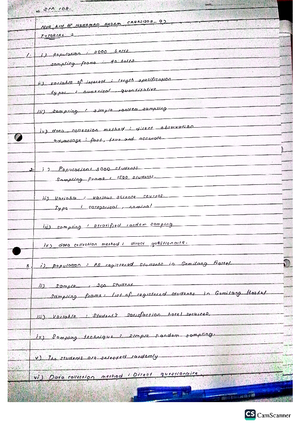 Tutorial 2
1. i) Population : 5000 bolts
Sampling frame : 80 bolts
ii) variable of interest : length specification
Types : numerical quantitative
iii) Sampling : simple random sampling
iv) data collection method : direct observation
Advantage : fast, and accurate
2. i) Population : 5000 students
Sampling frame : students
ii) Variable : various science
Type : categorical nominal
iii) sampling : stratified random sampling
iv) data collection method : direct questionnaire.
3. i) Population : All registered students in Gemilang Hostel
ii) Sample : 300 student
Sampling frame : list of registered students in Gemilang Hostel
iii) Variable : Student's Satisfaction hotel services
iv) Sampling technique : simple random sampling.
v) The students are selected randomly
vi) Data collection method : Direct questionnaire
CS CamScanner